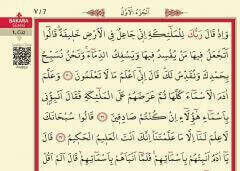 الجزء الاول
٧/٢
BAKARA
SÛRESİ
1. Cüz
وَاِذْ قَالَ رَبُّكَ لِلْمَلٰٓئِكَةِ اِنّٖى جَاعِلٌ فِى الْاَرْضِ خَلٖيفَةً قَالُٓوا
اَتَجْعَلُ فٖيهَا مَنْ يُفْسِدُ فٖيهَا وَيَسْفِكُ الدِّمَٓاءَ وَنَحْنُ نُسَبِّحُ
بِحَمْدِكَ وَنُقَدِّسُ لَكَ قَالَ اِنّٖٓى اَعْلَمُ مَا لَا تَعْلَمُونَ ﴿٣٠﴾ وَعَلَّمَ
اٰدَمَ الْاَسْمَٓاءَ كُلَّهَا ثُمَّ عَرَضَهُمْ عَلَى الْمَلٰٓئِكَةِ فَقَالَ اَنْبِؤُ۫نٖى
بِاَسْمَٓاءِ هٰٓؤُ۬لَٓاءِ اِنْ كُنْتُمْ صَادِقٖينَ ﴿٣١﴾ قَالُوا سُبْحَانَكَ
لَا عِلْمَ لَنَٓا اِلَّا مَا عَلَّمْتَنَا اِنَّكَ اَنْتَ الْعَلٖيمُ الْحَكٖيمُ ﴿٣٢﴾ قَالَ
يَٓا اٰدَمُ اَنْبِئْهُمْ بِاَسْمَٓائِهِمْ فَلَمَّٓا اَنْبَاَهُمْ بِاَسْمَٓائِهِمْ قَالَ اَلَمْ اَقُلْ